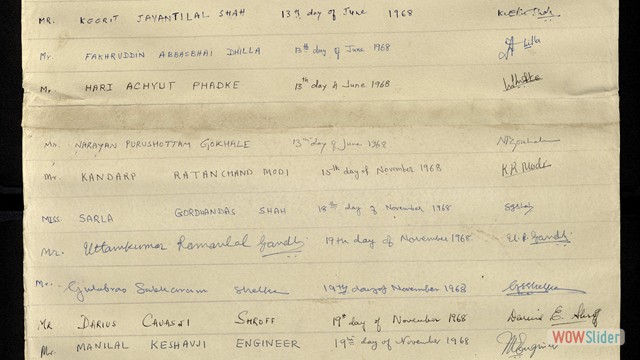 MR. KOORIT JAYANTILAL SHAH 13th day of June 1968
Mr. FAKHRUDDIN ABBASBHAI DHILLA 13th day of June 1968
Mr. HARI ACHYUT PHADKE 13th day of June 1968
Mr. NARAYAN PURUSHOTTAM GOKHALE 13th day of June 1968
Mr. KANDARP RATANCHAND MODI 15th day of November 1968 KR Modi
MISS. SARLA GORDHANDAS SHAH 18th day of November 1968
Mr. Uttamkumar Ramanlal Gandhi 19th day of November 1968. U.R. Gandhi
Mr. Gulabrao Sakharam Shelke 19th day of November 1968
MR DARIUS CAVASJI SHROFF 19th day of November 1968 Darius C. Shroff
Mr. MANILAL KESHAVJI ENGINEER 19th day of November 1968
WOWSlider